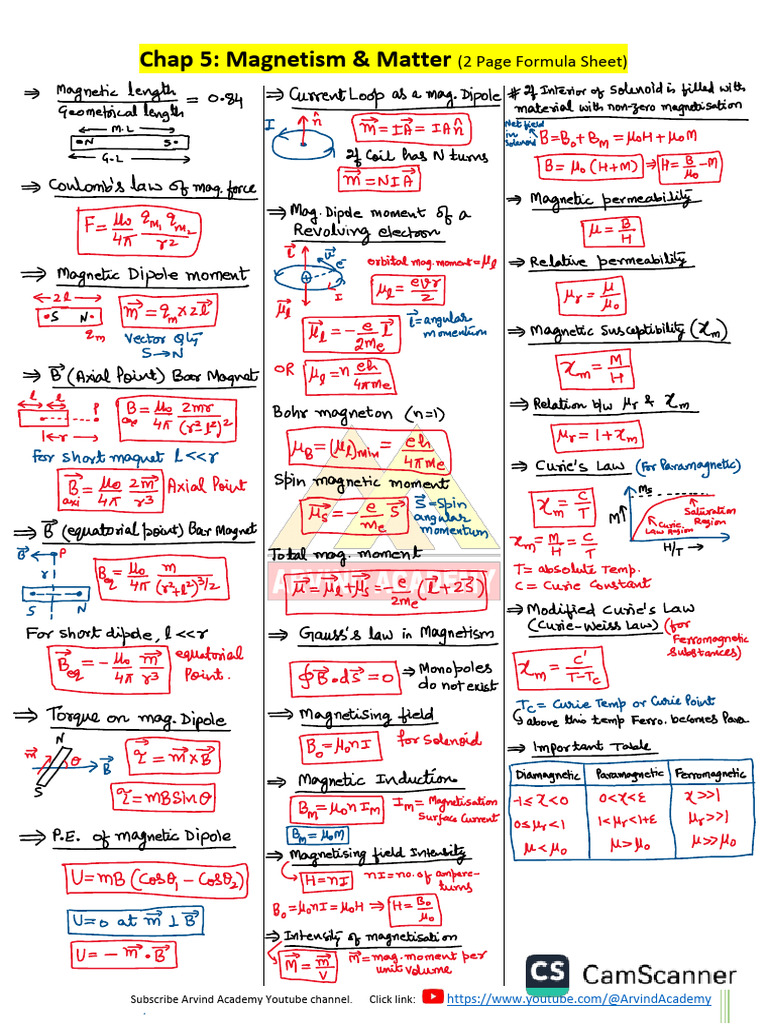 Chap 5: Magnetism & Matter (2 Page Formula Sheet)
⇒ Magnetic length / Geometrical length = 0.84
M.L
N S
G.L
⇒ Coulomb's law of mag. force
F = μ₀/4π qm₁ qm₂/r²
⇒ Magnetic Dipole moment
2l
S N
qm
m⃗ = qm × 2l⃗
Vector Qty
S→N
⇒ B⃗ (Axial Point) Bar Magnet
l l
r
P
B axi = μ₀/4π 2mr/(r²-l²)²
For short magnet l<<r
B⃗ axi = μ₀/4π 2m⃗/r³ Axial Point
⇒ B⃗ (equatorial point) Bar Magnet
B⃗ P
r
S N
Beq = μ₀/4π m/(r²+l²)^3/2
For short dipole, l<<r
B⃗eq = -μ₀/4π m⃗/r³ equatorial Point.
⇒ Torque on mag. Dipole
N
m⃗ θ B⃗
S
τ⃗ = m⃗×B⃗
τ = mBsinθ
⇒ P.E. of magnetic Dipole
U = mB (cosθ₁ - cosθ₂)
U=0 at m⃗ ⊥ B⃗
U = - m⃗ • B⃗
⇒ Current Loop as a mag. Dipole
I n̂
m⃗ = IA⃗ = IA n̂
If coil has N turns
m⃗ = NIA⃗
⇒ Mag. Dipole moment of a
Revolving electron
l⃗ v⃗ e⁻
I
μ⃗l
orbital mag. moment = μl
μl = evr/2
μ⃗l = - e/2me l⃗
l⃗ = angular momentum
OR μl = n eh/4πme
Bohr magneton (n=1)
μB = (μl)min = eh/4πme
Spin magnetic moment
μ⃗s = - e/me s⃗
S⃗ = Spin angular momentum
Total mag. moment
μ⃗ = μ⃗l + μ⃗s = e/2me (l⃗ + 2s⃗)
ARVIND ACADEMY
⇒ Gauss's law in Magnetism
∮B⃗•ds⃗ = 0 ⇒ Monopoles do not exist
⇒ Magnetising field
B₀ = μ₀nI for solenoid
⇒ Magnetic Induction
Bm = μ₀n Im
Im = Magnetisation Surface Current
Bm = μ₀M
⇒ Magnetising field Intensity
H = nI nI = no. of ampere-turns
B₀ = μ₀nI = μ₀H ⇒ H = B₀/μ₀
⇒ Intensity of magnetisation
M⃗ = m⃗/V M⃗ = mag. moment per unit volume
# If Interior of Solenoid is filled with
material with non-zero magnetisation
Net field in Solenoid
B = B₀ + Bm = μ₀H + μ₀M
B = μ₀ (H+M) ⇒ H = B/μ₀ - M
⇒ Magnetic permeability
μ = B/H
⇒ Relative permeability
μr = μ/μ₀
⇒ Magnetic Susceptibility (χm)
χm = M/H
⇒ Relation b/w μr & χm
μr = 1 + χm
⇒ Curie's Law (For Paramagnetic)
χm = C/T
χm = M/H = C/T
Ms
M↑
Saturation Region
Curie Law Region
H/T →
T = absolute Temp.
C = Curie Constant
⇒ Modified Curie's Law
(Curie-Weiss Law) (for Ferromagnetic Substances)
χm = C'/T-Tc
Tc = Curie Temp or Curie Point
above this temp Ferro. becomes Para.
⇒ Important Table
Diamagnetic Paramagnetic Ferromagnetic
-1≤χ<0 0<χ<ε χ>>1
0≤μr<1 1<μr<1+ε μr>>1
μ<μ₀ μ>μ₀ μ>>μ₀
CS CamScanner
Subscribe Arvind Academy Youtube channel. Click link: https://www.youtube.com/@ArvindAcademy